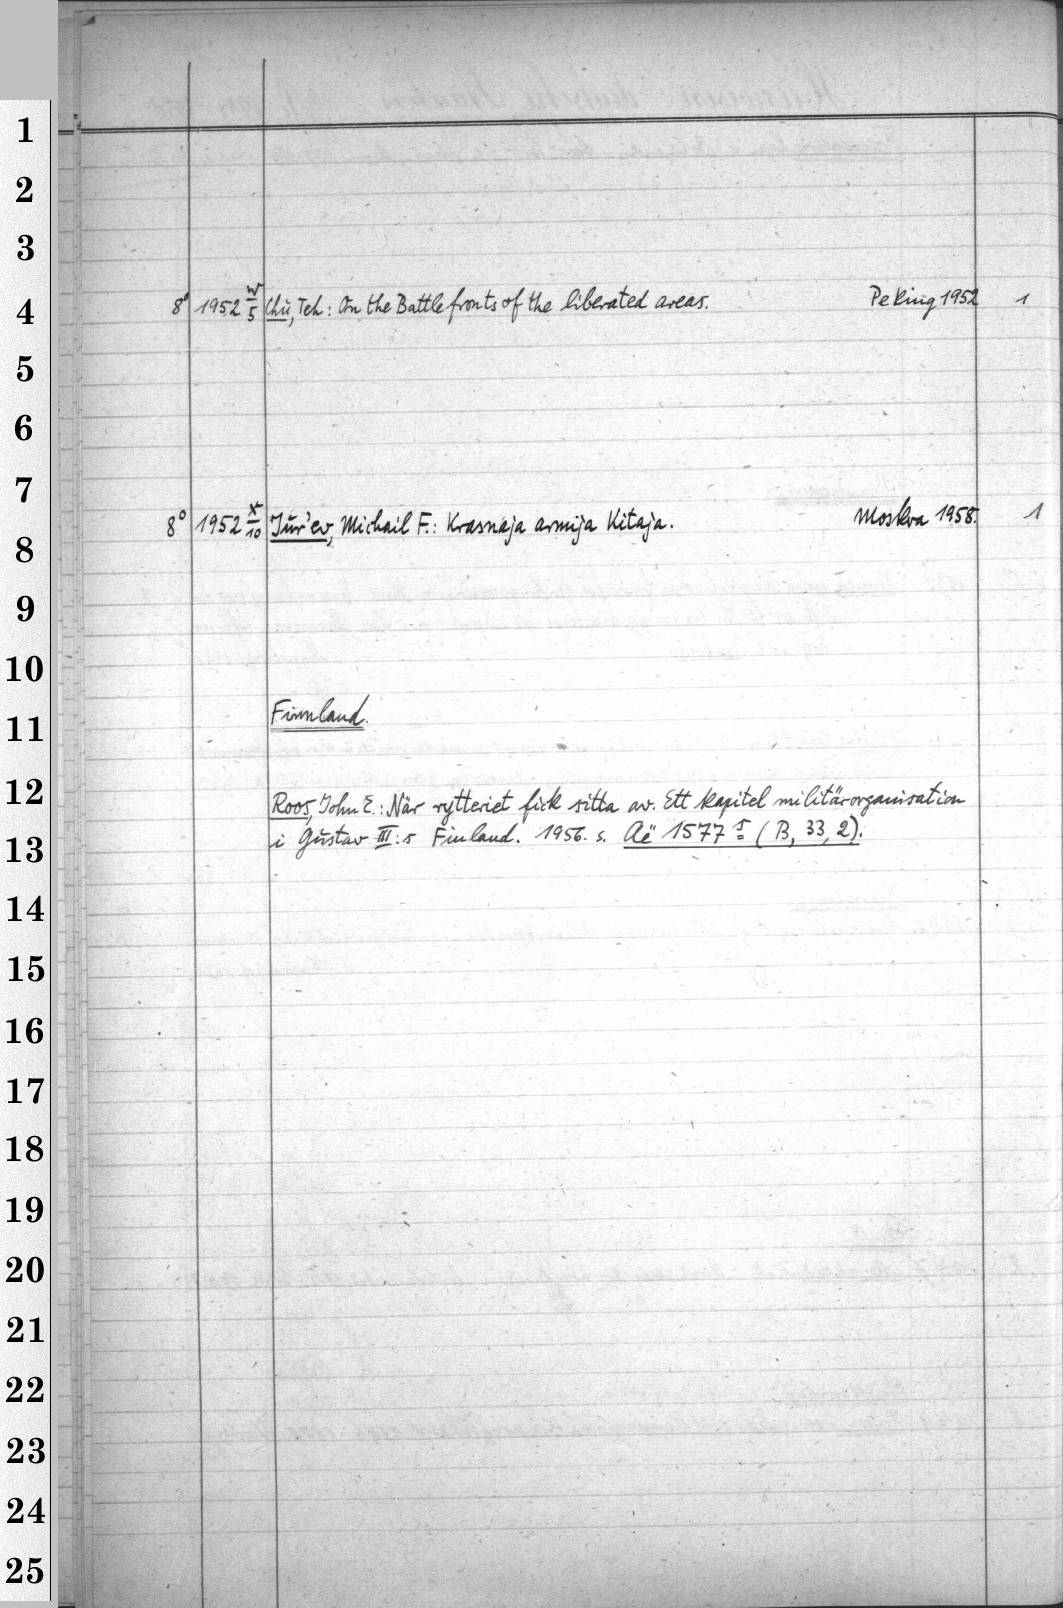 1
2
3
4
8° 1952 W/5 Chü, Teh: On the Battlefronts of the liberated areas. Peking 1952 1
5
6
7
8° 1952 X/10 Jur'ev, Michail F.: Krasnaja armija Kitaja. Moskva 1958. 1
8
9
10
Finnland.
11
12
Roos, John E.: När rytteriet fick sitta av. Ett kapitel militärorganisation
i Gustav III:s Finland. 1956. s. Aë 1577 5 (B, 33, 2).
13
14
15
16
17
18
19
20
21
22
23
24
25